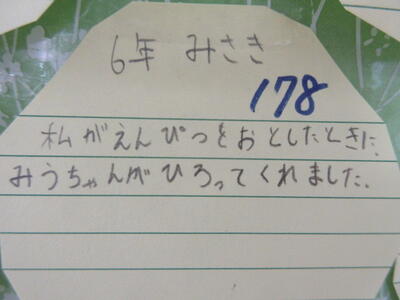 6年 みさき
178
私がえんぴつをおとしたときに、
みうちゃんがひろってくれました。